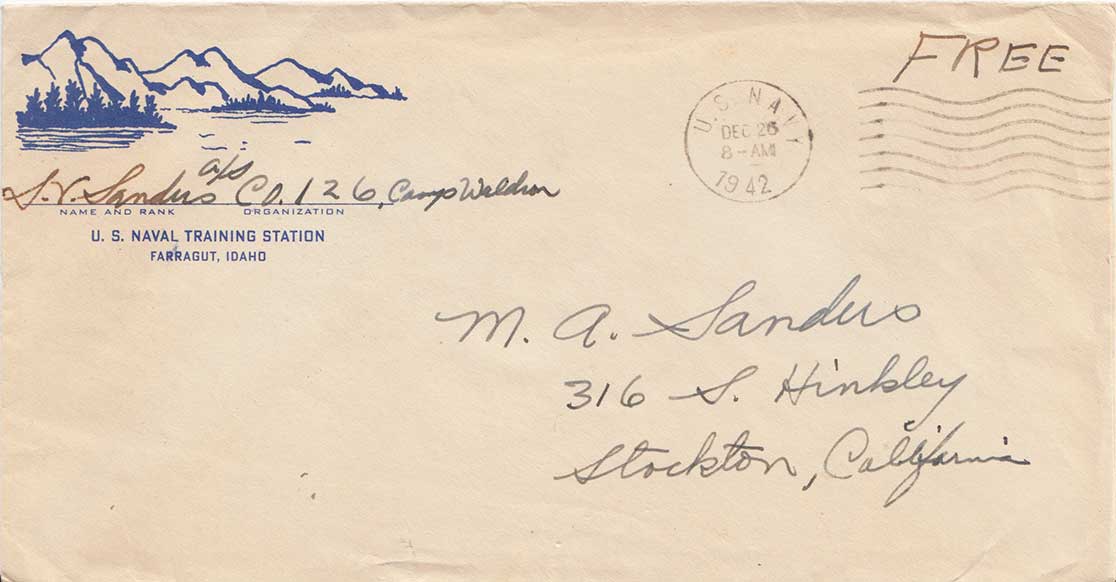 FREE
U.S. NAVY
DEC 26
8-AM
1942
S.V. Sanders a/s Co. 126, Camp Waldron
NAME AND RANK ORGANIZATION
U. S. NAVAL TRAINING STATION
FARRAGUT, IDAHO
M. A. Sanders
316 S. Hinkley
Stockton, California